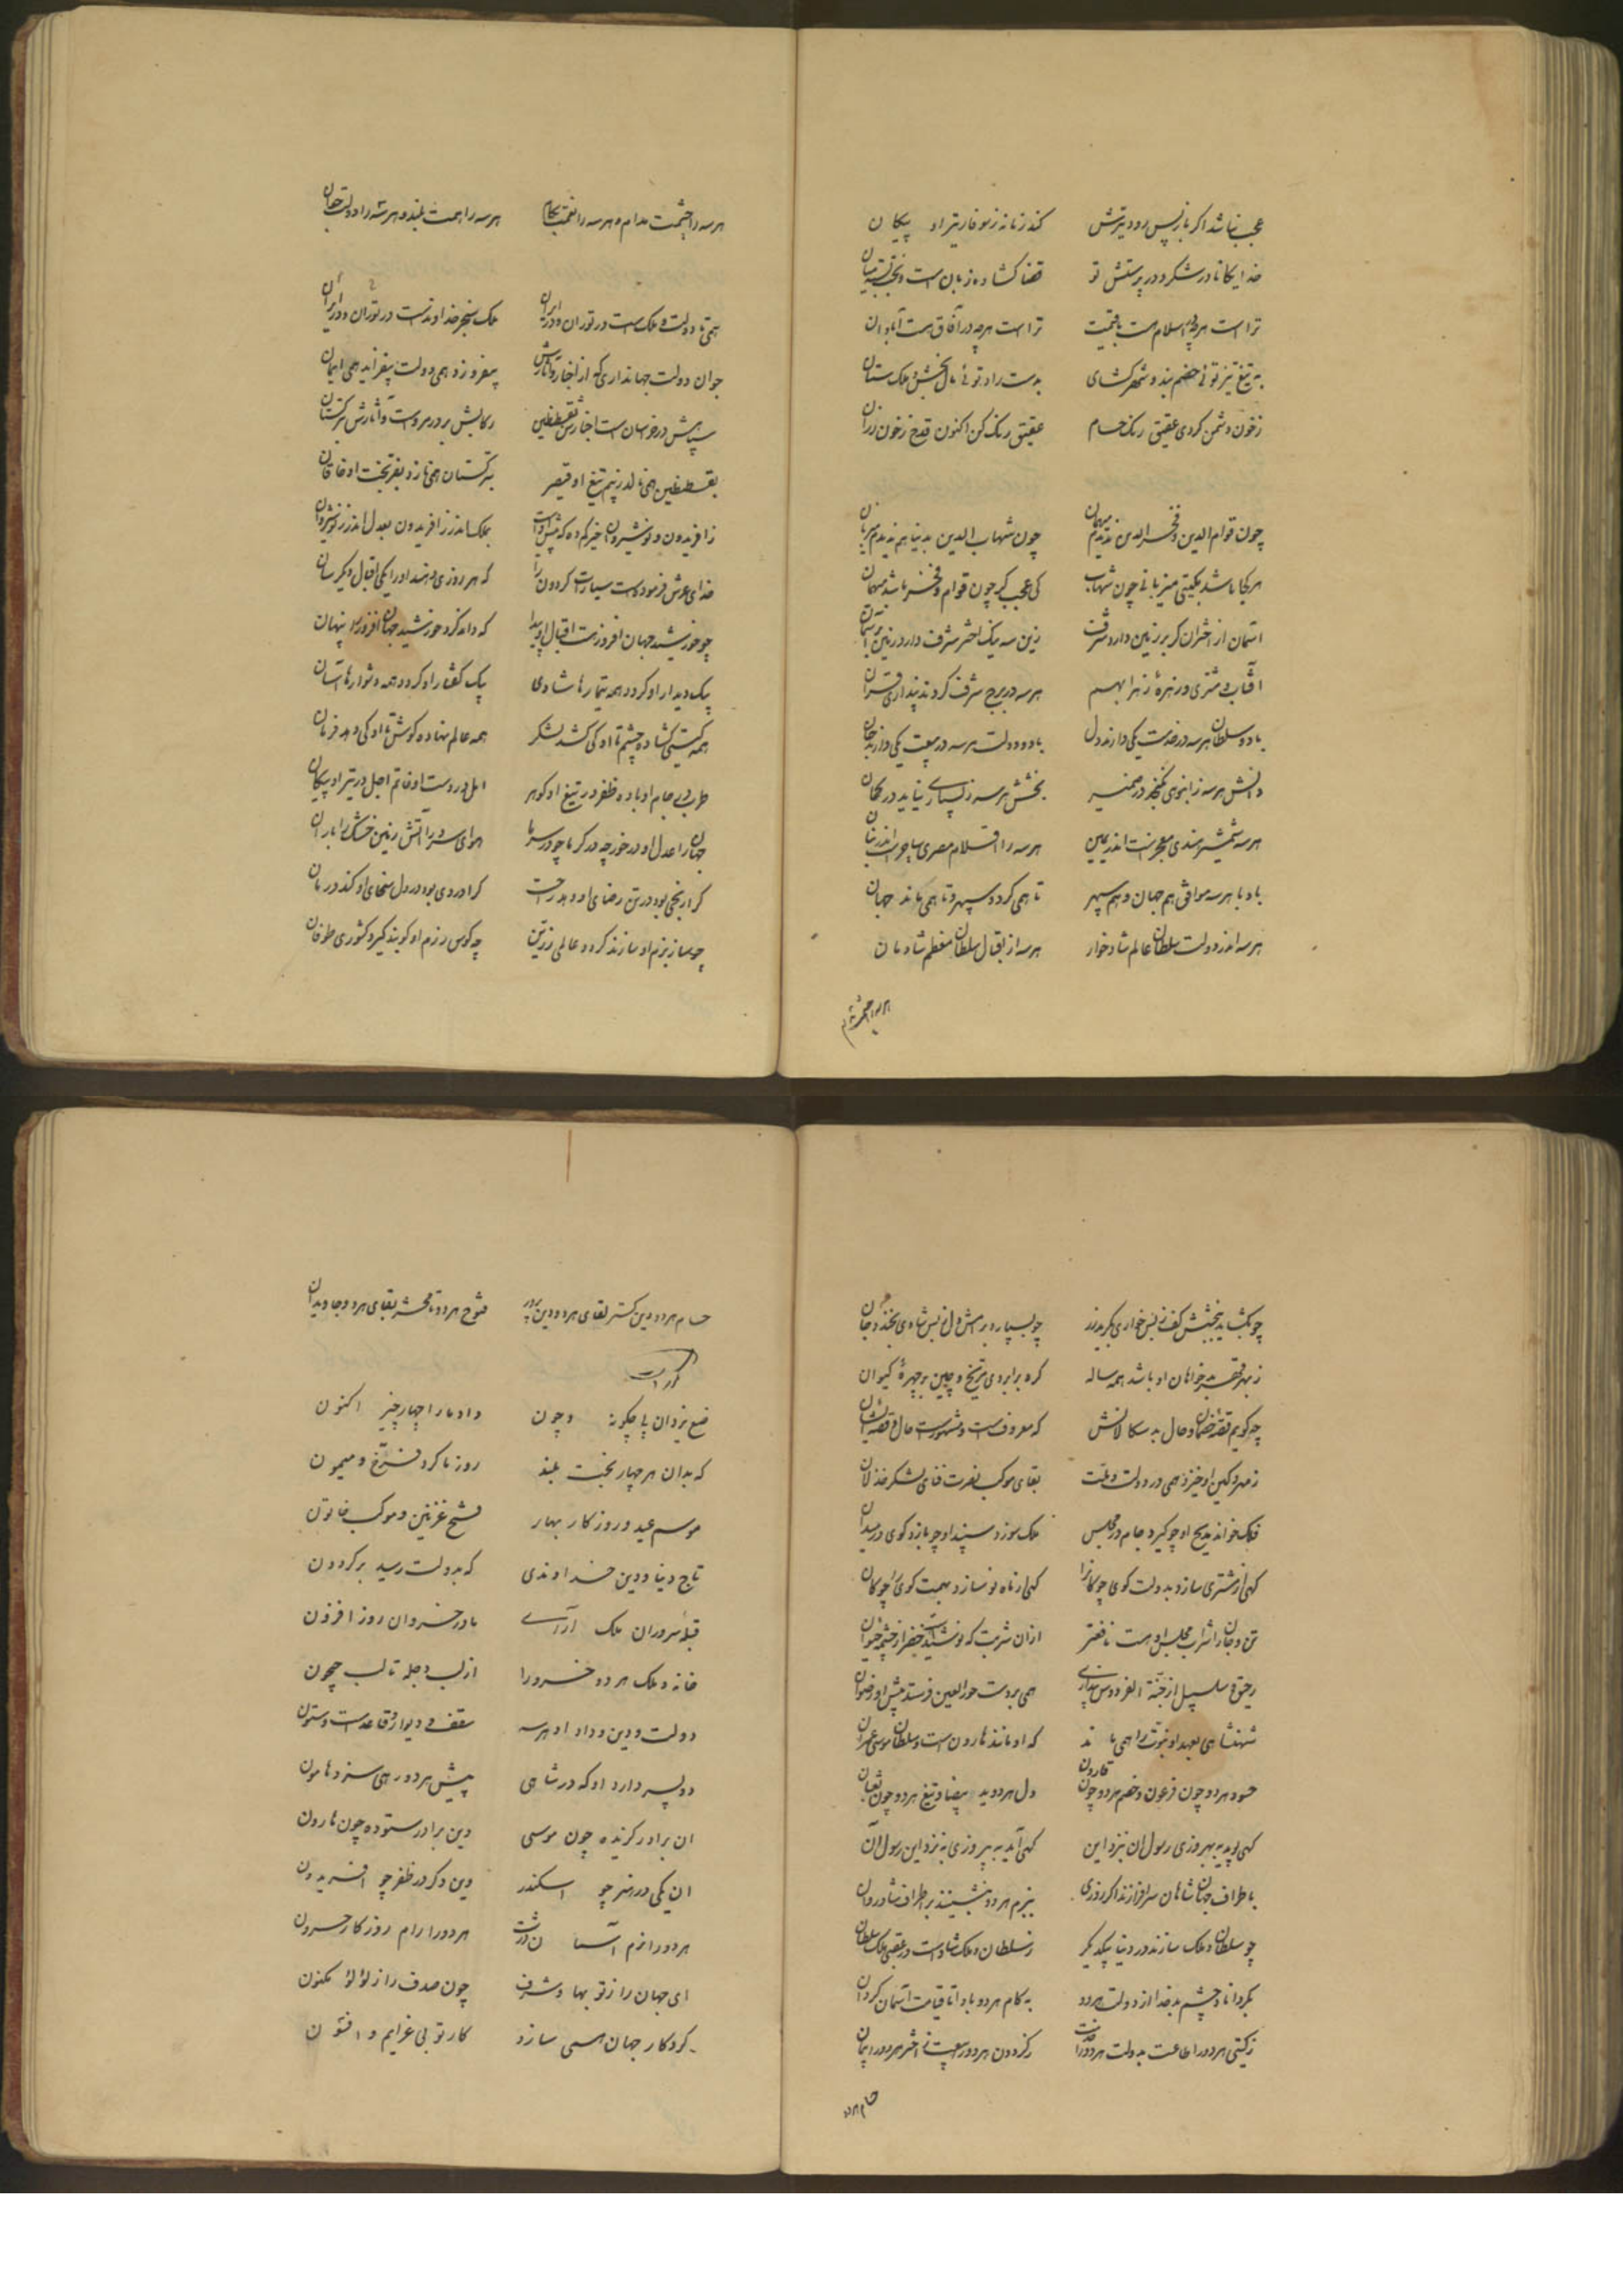 عجب نباشد اگر باز پس رود تیرش کند زمانه ز سوفار تیر او پیکان
خدایگانا در شکر و در پرستش تو قضا گشاده زبان است و بخت بسته میان
تراست هرچه در اسلام هست با قیمت تراست هرچه در آفاق هست آبادان
به تیغ تیز توئی خصم بند و شهر گشای بدست راد توئی مال بخش و ملک ستان
ز خون دشمن کردی عقیق رنگ حسام عقیق رنگ کن اکنون قدح ز خون رزان
چون قوام الدین و فخرالدین ندیدم میهمان چون شهاب الدین بدنیا هم ندیدم میزبان
هر کجا باشد بگیتی میزبانی چون شهاب کی عجب گر چون قوام و فخر باشد میهمان
آسمان از اختران گر بر زمین دارد شرف زین سه نیک اختر شرف دارد زمین بر آسمان
آفتاب و مشتری و زهره زهرا بهم هر سه در برج شرف کردند پنداری قران
با دو سلطان هر سه در خدمت یکی دارند دل با دو دولت هر سه در بیعت یکی دارند جان
دانش هر سه ز انبوهی نگنجد در ضمیر بخشش هر سه ز بسیاری نیاید در گمان
هر سه شمشیر هندی معجزست اندر یمین هر سه را اقلام مصری ساحرست اندر بنان
باد با هر سه موافق هم جهان و هم سپهر تا همی گردد سپهر و تا همی ماند جهان
هر سه اندر دولت سلطان عالم شادخوار هر سه از اقبال سلطان معظم شادمان
هر سه را حشمت
هر سه را حشمت مدام و هر سه را نعمت بکام هر سه را همت بلند و هر سه را دولت جوان
همی تا دولت و ملک است در توران و در ایران ملک سنجر خداوندست در توران و در ایران
جوان دولت جهانداری که از اخبار و آثارش بیفروزد همی دولت بیفزاید همی ایمان
سپاهش در خراسان است اخبارش بقسطنطین رکابش بر در مروست و آثارش بترکستان
بقسطنطین همی نالد ز بیم تیغ او قیصر بترکستان همی نازد بفر بخت او خاقان
ز افریدون و نوشیروان خبر کم ده که بیش است او بملک اندر ز افریدون بعدل اندر ز نوشروان
خدای عرش فرمودست سیارات گردون را که هر روزی دهند او را یکی اقبال دیگر سان
چو خورشید جهان افروزست اقبال او پیدا که داند کرد خورشید جهان افروز را پنهان
بیک دیدار او گردد همه تیمارها شادی بیک گفتار او گردد همه دشوارها آسان
همه گیتی گشاده چشم تا او کی کشد لشکر همه عالم نهاده گوش تا او کی دهد فرمان
طرب در جام او باده ظفر در تیغ او گوهر امل در دست او خاتم اجل در تیر او پیکان
جهان را عدل او در خور چه در گرما چه در سرما هوای سرد را آتش زمین خشک را باران
گر از رنجی بود در تن رضای او دهد راحت گر از دردی بود در دل سخای او کند درمان
چو ساز بزم او سازند گردد عالمی زرین چو کوس رزم او کوبند گیرد کشوری طوفان
چو بگشاید ببخشش کف ز بس خواری بگرید زر چو بسپارد برامش دل ز بس شادی بخندد جان
ز بهر قهر بدخواهان او باشد همه ساله گره بر ابروی مریخ و چین بر چهره کیوان
چه گویم قصه خصمان و حال بد سگالانش که معروفست و مشهورست حال و قصه ایشان
ز مهر و کین او خیزد همی در دولت و ملت بقای موکب نصرت فنای لشکر خذلان
فلک خواند مدیح او چو گیرد جام در مجلس ملک سوزد سپند او چو بازد گوی در میدان
گهی از مشتری سازد بدولت گوی چوگان را گهی از ماه نو سازد بهمت گوی را چوگان
تن و جان را شراب مجلس او هست نافعتر از آن شربت که نوشیدست خضر از چشمه حیوان
رحیق و سلسبیل از جنة الفردوس پنداری همی بر دست حورالعین فرستد پیش او رضوان
شهنشاهی بعهد او نبوت را همی ماند که او مانند هارون است و سلطان موسی عمران
حسود هر دو چون فرعون و خصم هر دو چون قارون دل هر دو ید بیضا و تیغ هر دو چون ثعبان
گهی پوید به بهروزی رسول آن بنزد این گهی آید به پیروزی به نزد این رسول آن
باطراف جهان شاهان سرافرازند اگر روزی ببزم هر دو بنشینند بر اطراف شادروان
چو سلطان و ملک سازند در دنیا بیکدیگر ز سلطان و ملک شادست در عقبی ملک سلطان
بگرداناد چشم بد خدا از دولت هر دو به کام هر دو بادا تا قیامت آسمان گردان
ز گیتی هر دو را طاعت بدولت هر دو را خدمت ز گردون هر دو را بیعت ز اختر هر دو را پیمان
حسام هر دو
حسام هر دو دین گستر لقای هر دو دین پرور فتوح هر دو تا محشر بقای هر دو جاویدان
صنع یزدان بی چگونه و چون داد ما را چهار چیز اکنون
که بدان هر چهار بخت بلند روز ما کرد فرخ و میمون
موسم عید و روزگار بهار فتح غزنین و موکب خاتون
تاج دنیا و دین خداوندی که بدولت رسید بر گردون
قبله سروران ملک آرای مادر خسروان روز افزون
خانه و ملک هر دو خسرو را از لب دجله تا لب جیحون
دولت و دین و داد او هر سه سقف و دیوار و قاعدست و ستون
دو پسر دارد او که در شاهی پیش هر دو رهی سزد هامون
آن برادر گزیده چون موسی وین برادر ستوده چون هارون
آن یکی در هنر چو اسکندر وین دگر در ظفر چو افریدون
هر دو را رام روزگار حرون
ای جهان را ز تو بها و شرف چون صدف را ز لؤلؤ مکنون
کردگار جهان همی سازد کار تو بی عزایم و افسون